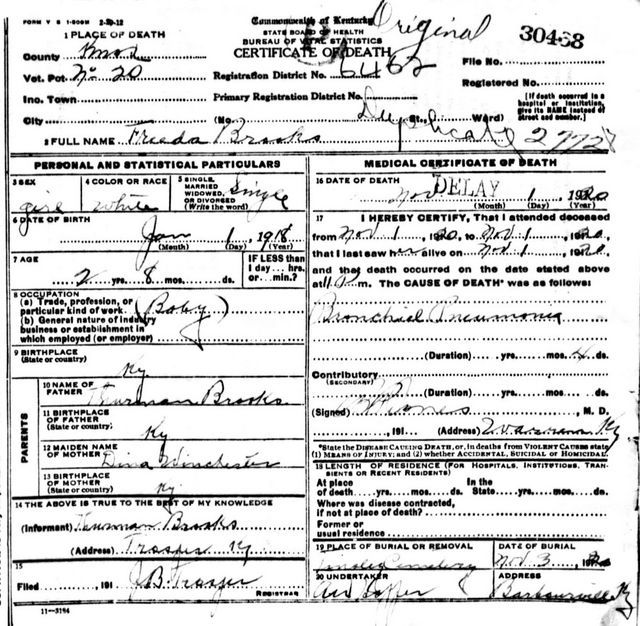 FORM V S 1-500M 2-20-12
Commonwealth of Kentucky
Original
1 PLACE OF DEATH
STATE BOARD OF HEALTH
BUREAU OF VITAL STATISTICS
CERTIFICATE OF DEATH
30468
County Knox
File No.
Vot. Pct No 20
Registration District No. 6462
Registered No.
Inc. Town
Primary Registration District No.
[If death occurred in a hospital or institution, give its NAME instead of street and number.]
City (No. St. Ward)
Duplicate 27728
2 FULL NAME Freeda Brooks
PERSONAL AND STATISTICAL PARTICULARS
3 SEX girl
4 COLOR OR RACE white
5 SINGLE, MARRIED WIDOWED, OR DIVORCED (Write the word) Single
6 DATE OF BIRTH
Jan 1, 1918
(Month) (Day) (Year)
7 AGE
IF LESS than 1 day... hrs. or...min.?
2 yrs. 8 mos. ds.
8 OCCUPATION
(a) Trade, profession, or particular kind of work (Baby)
(b) General nature of industry business or establishment in which employed (or employer)
9 BIRTHPLACE
(State or country) Ky
PARENTS
10 NAME OF FATHER Thurman Brooks
11 BIRTHPLACE OF FATHER
(State or country) Ky
12 MAIDEN NAME OF MOTHER Dina Winchester
13 BIRTHPLACE OF MOTHER
(State or country) Ky
14 THE ABOVE IS TRUE TO THE BEST OF MY KNOWLEDGE
(Informant) Thurman Brooks
(Address) Trosper Ky
15
Filed , 191 J.B. Trosper
REGISTRAR
11-3184
MEDICAL CERTIFICATE OF DEATH
16 DATE OF DEATH
DELAY
Nov 1 1920
(Month) (Day) (Year)
17 I HEREBY CERTIFY, That I attended deceased
from Nov 1, 1920, to Nov 1, 1920,
that I last saw her alive on Nov 1, 1920,
and that death occurred on the date stated above
at m. The CAUSE OF DEATH* was as follows:
Bronchial Pneumonia
(Duration) yrs. mos. 4 ds.
Contributory
(SECONDARY)
(Duration) yrs. mos. ds.
(Signed) , M. D.
, 191 (Address) Ky
*State the DISEASE CAUSING DEATH, or, in deaths from VIOLENT CAUSES state (1) MEANS OF INJURY; and (2) whether ACCIDENTAL, SUICIDAL OR HOMICIDAL.
18 LENGTH OF RESIDENCE (FOR HOSPITALS, INSTITUTIONS, TRANSIENTS OR RECENT RESIDENTS)
At place of death yrs. mos. ds. In the State yrs. mos. ds.
Where was disease contracted, if not at place of death?
Former or usual residence
19 PLACE OF BURIAL OR REMOVAL
Cemetery
DATE OF BURIAL
Nov. 3, 1920
20 UNDERTAKER
ADDRESS
Barbourville Ky